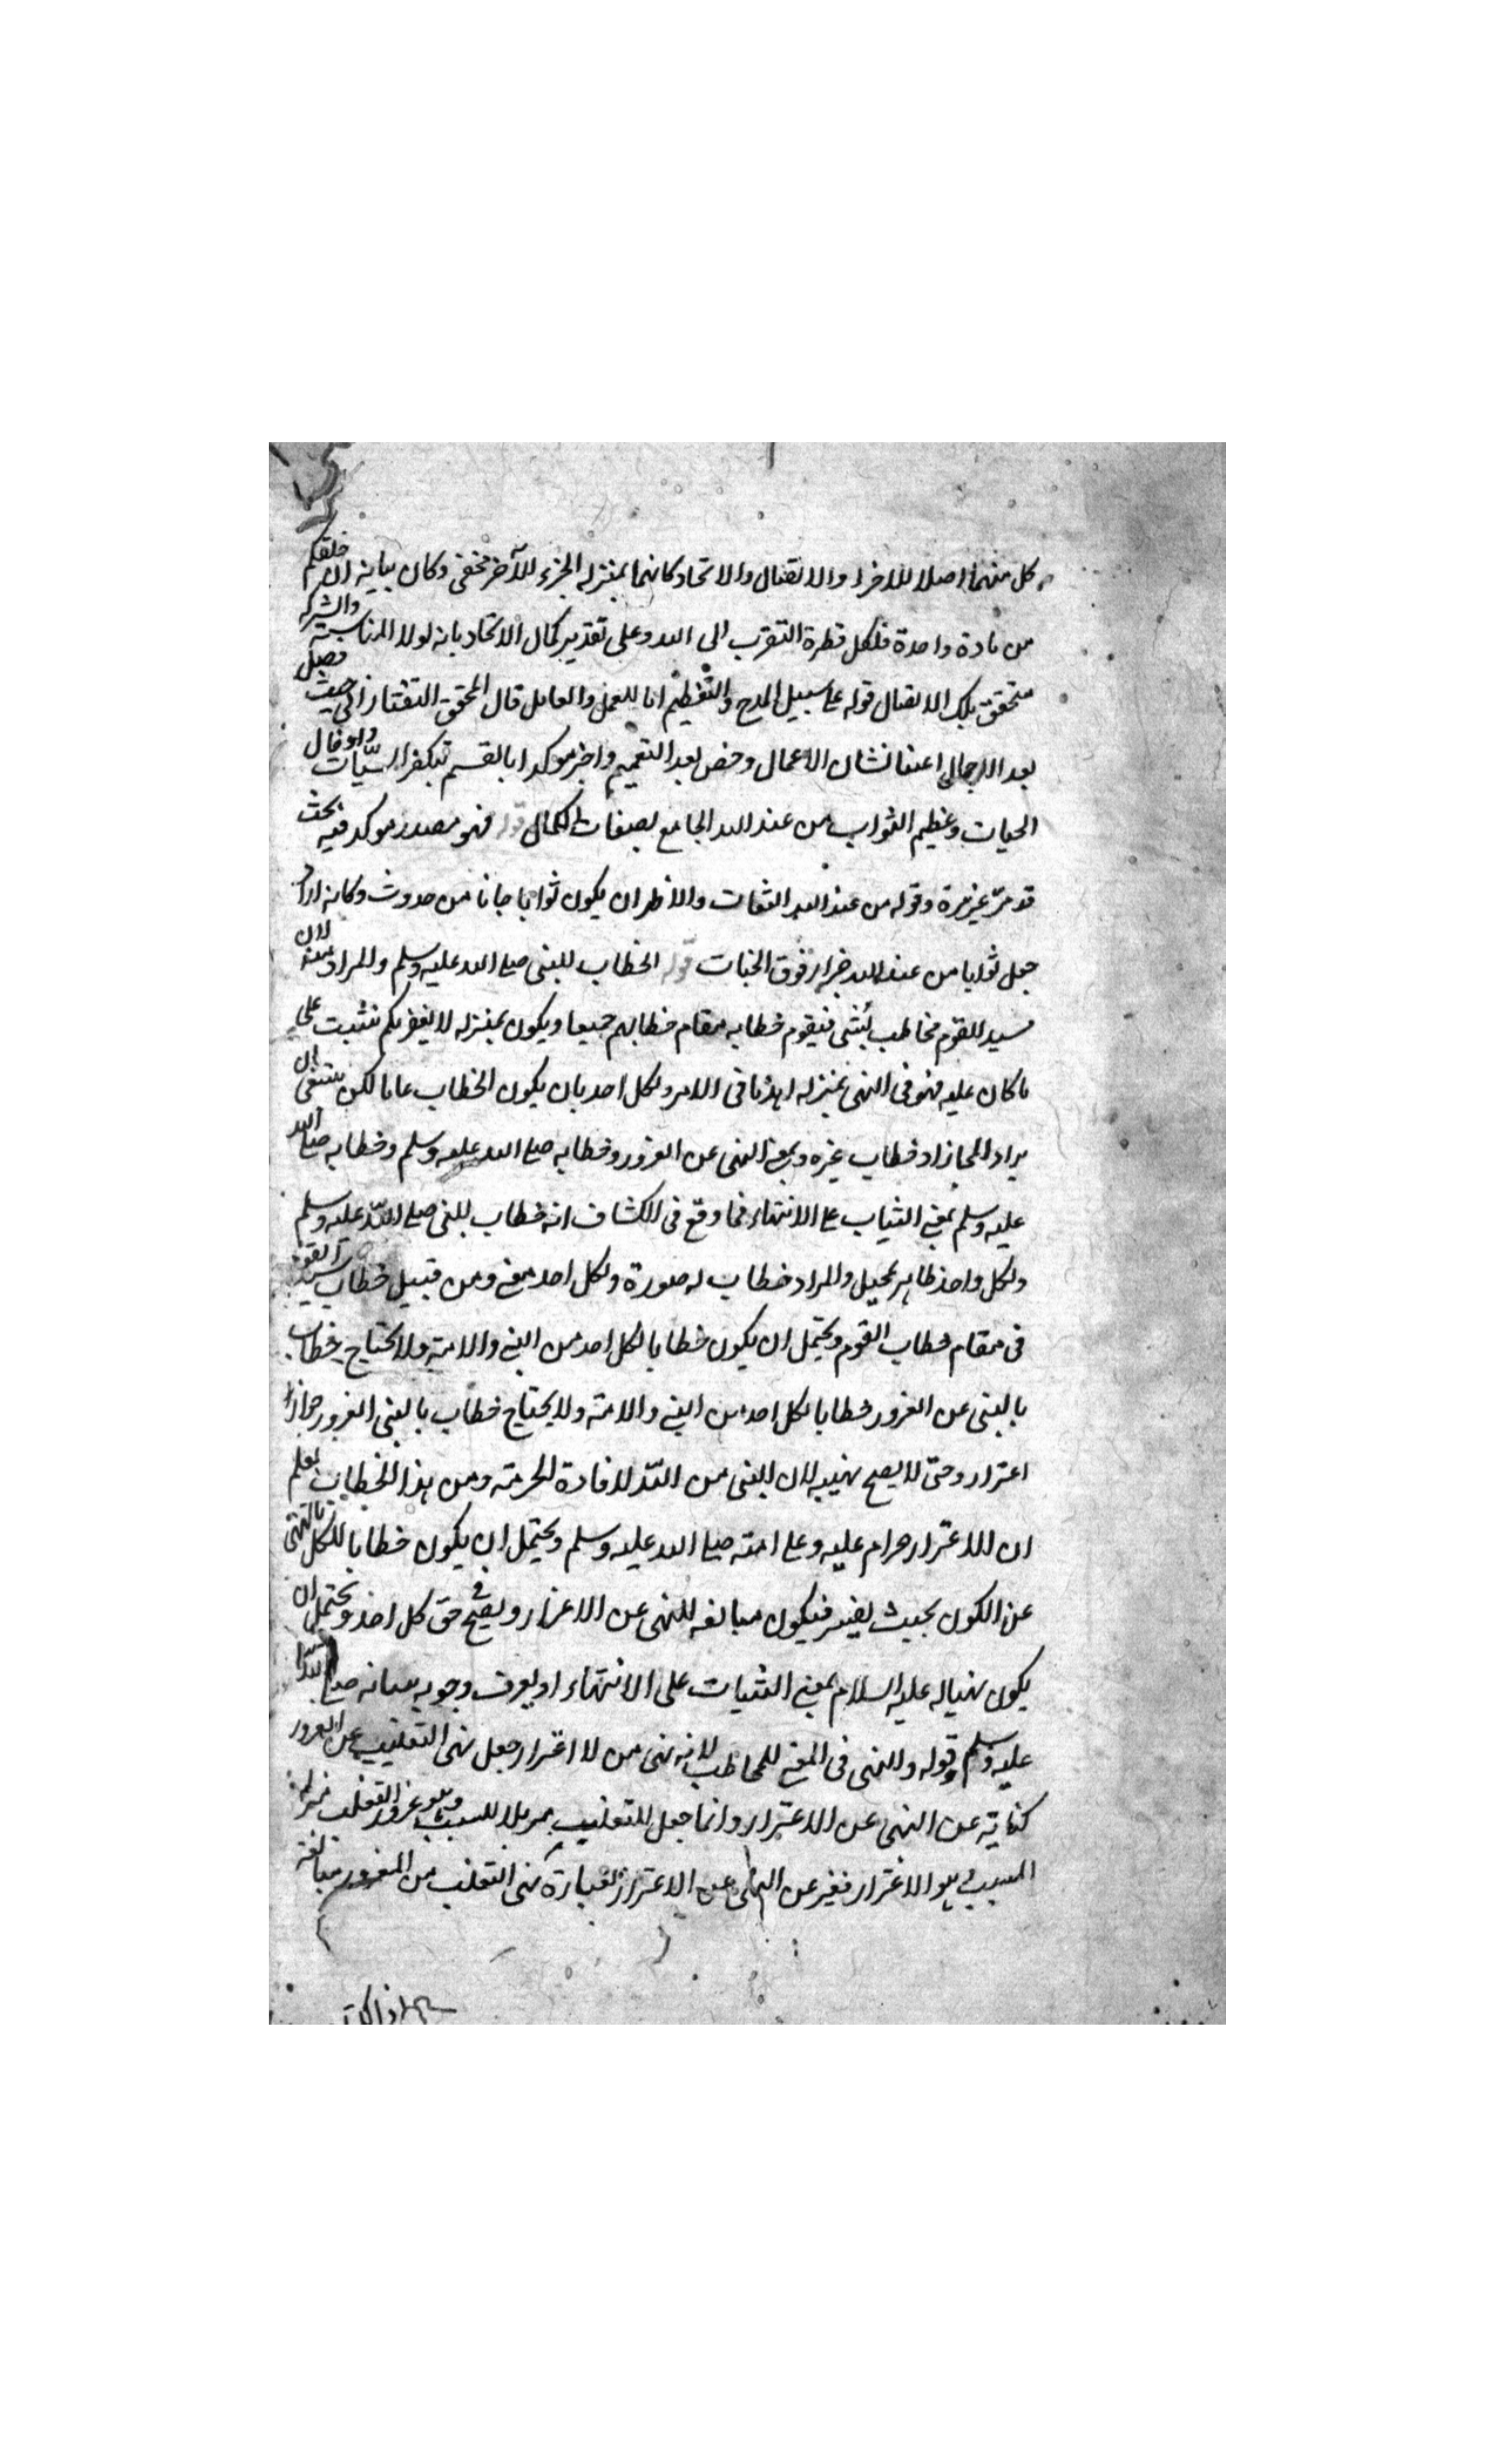 كل منهما اصلا للاخر او الاتصال والاتحاد كانهما بمنزله الجزء للآخر مخفى وكان بيانه ان خلقكم
من مادة واحدة فلكل قطرة التقرب الى الله وعلى تقدير كمال الاتحاد بانه لولا المناسبة والشركة
متحقق تلك الاتصال قوله على سبيل المدح والتعظيم اما للعمل والعامل قال المحقق التفتازانى حيث فصل
بعد الاجمال اعتنا نشان الاعمال وخص بعد التعميم واخبر موكدا بالقسم تبكفير السيّات وادخال
الجنات وعظيم الثواب من عند الله الجامع لصفات الكمال قوله فهو مصدر موكد فيه بحث
قد مرّ غيرمرة وقوله من عند الله التفات والاظهر ان يكون ثوابا حانا من حدوث وكانه اراد
جعل ثوابا من عند الله خبر ارفوق الجنات قوله الخطاب للنبى صلى الله عليه وسلم والمراد منه لان
سيد القوم مخاطب بشى فيقوم خطابه مقام خطابهم جميعا ويكون بمنزله لا يغرنكم تثبت على
ما كان عليه فهو فى النهى بمنزله اهدنا فى الامر ولكل احد بان يكون الخطاب عاما لكن ينبغى ان
يراد المجاز اد خطاب غيره بمعنى النهى عن الغرور وخطابه صلى الله عليه وسلم وخطابه صلى الله
عليه وسلم بمعنى الثبات على الانتهاء فما وقع فى الكشاف انه خطاب للنبى صلى اللّه عليه وسلم
ولكل واحد ظاهر مخيل والمراد خطاب له صورة ولكل احد معنى ومن قبيل خطاب سيد القوم
فى مقام خطاب القوم ويحتمل ان يكون خطابا لكل احد من النبى والامة ولا يحتاج خطاب
بالنهى عن الغرور خطابا لكل احد من النبى والامة ولا يحتاج خطاب بالنهى الغرور جوازا
اعترار وحتى لا يصح نهييه لان النهى من اللّه لافادة الحرمة ومن هذا الخطاب يعلم
ان الاعترار حرام عليه وعلى امته صلى الله عليه وسلم ويحتمل ان يكون خطابا للكل بالنهى
عن الكون بحيث يغتر فيكون مبالغه للنهى عن الاعزار ويصح فى حق كل احد ويحتمل ان
يكون نهيا له عليه السلام بمعنى الثبات على الانتهاء او يعرف وجوبه ببيانه صلى اللّه
عليه وسلم وقوله والنهى فى المعنى للمخاطب لانه نهى من لا اغترار جعل نهى التقليب عن الغرور
كناية عن النهى عن الاعترار وانما جعل للتقليب تنزيلا للسبب وهو غرور التقلب منزلة
المسبب وهو الاغترار فغير عن النهى عن الاعترار بعبارة نهى التقلب من المغرور مبالغة